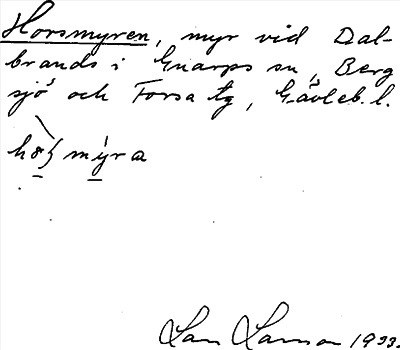 Horsmyren, myr vid Dal-
brands i Gnarps sn, Berg
sjö och Forsa tg, Gävleb. l.
mýra
Lars Larsson 1933.